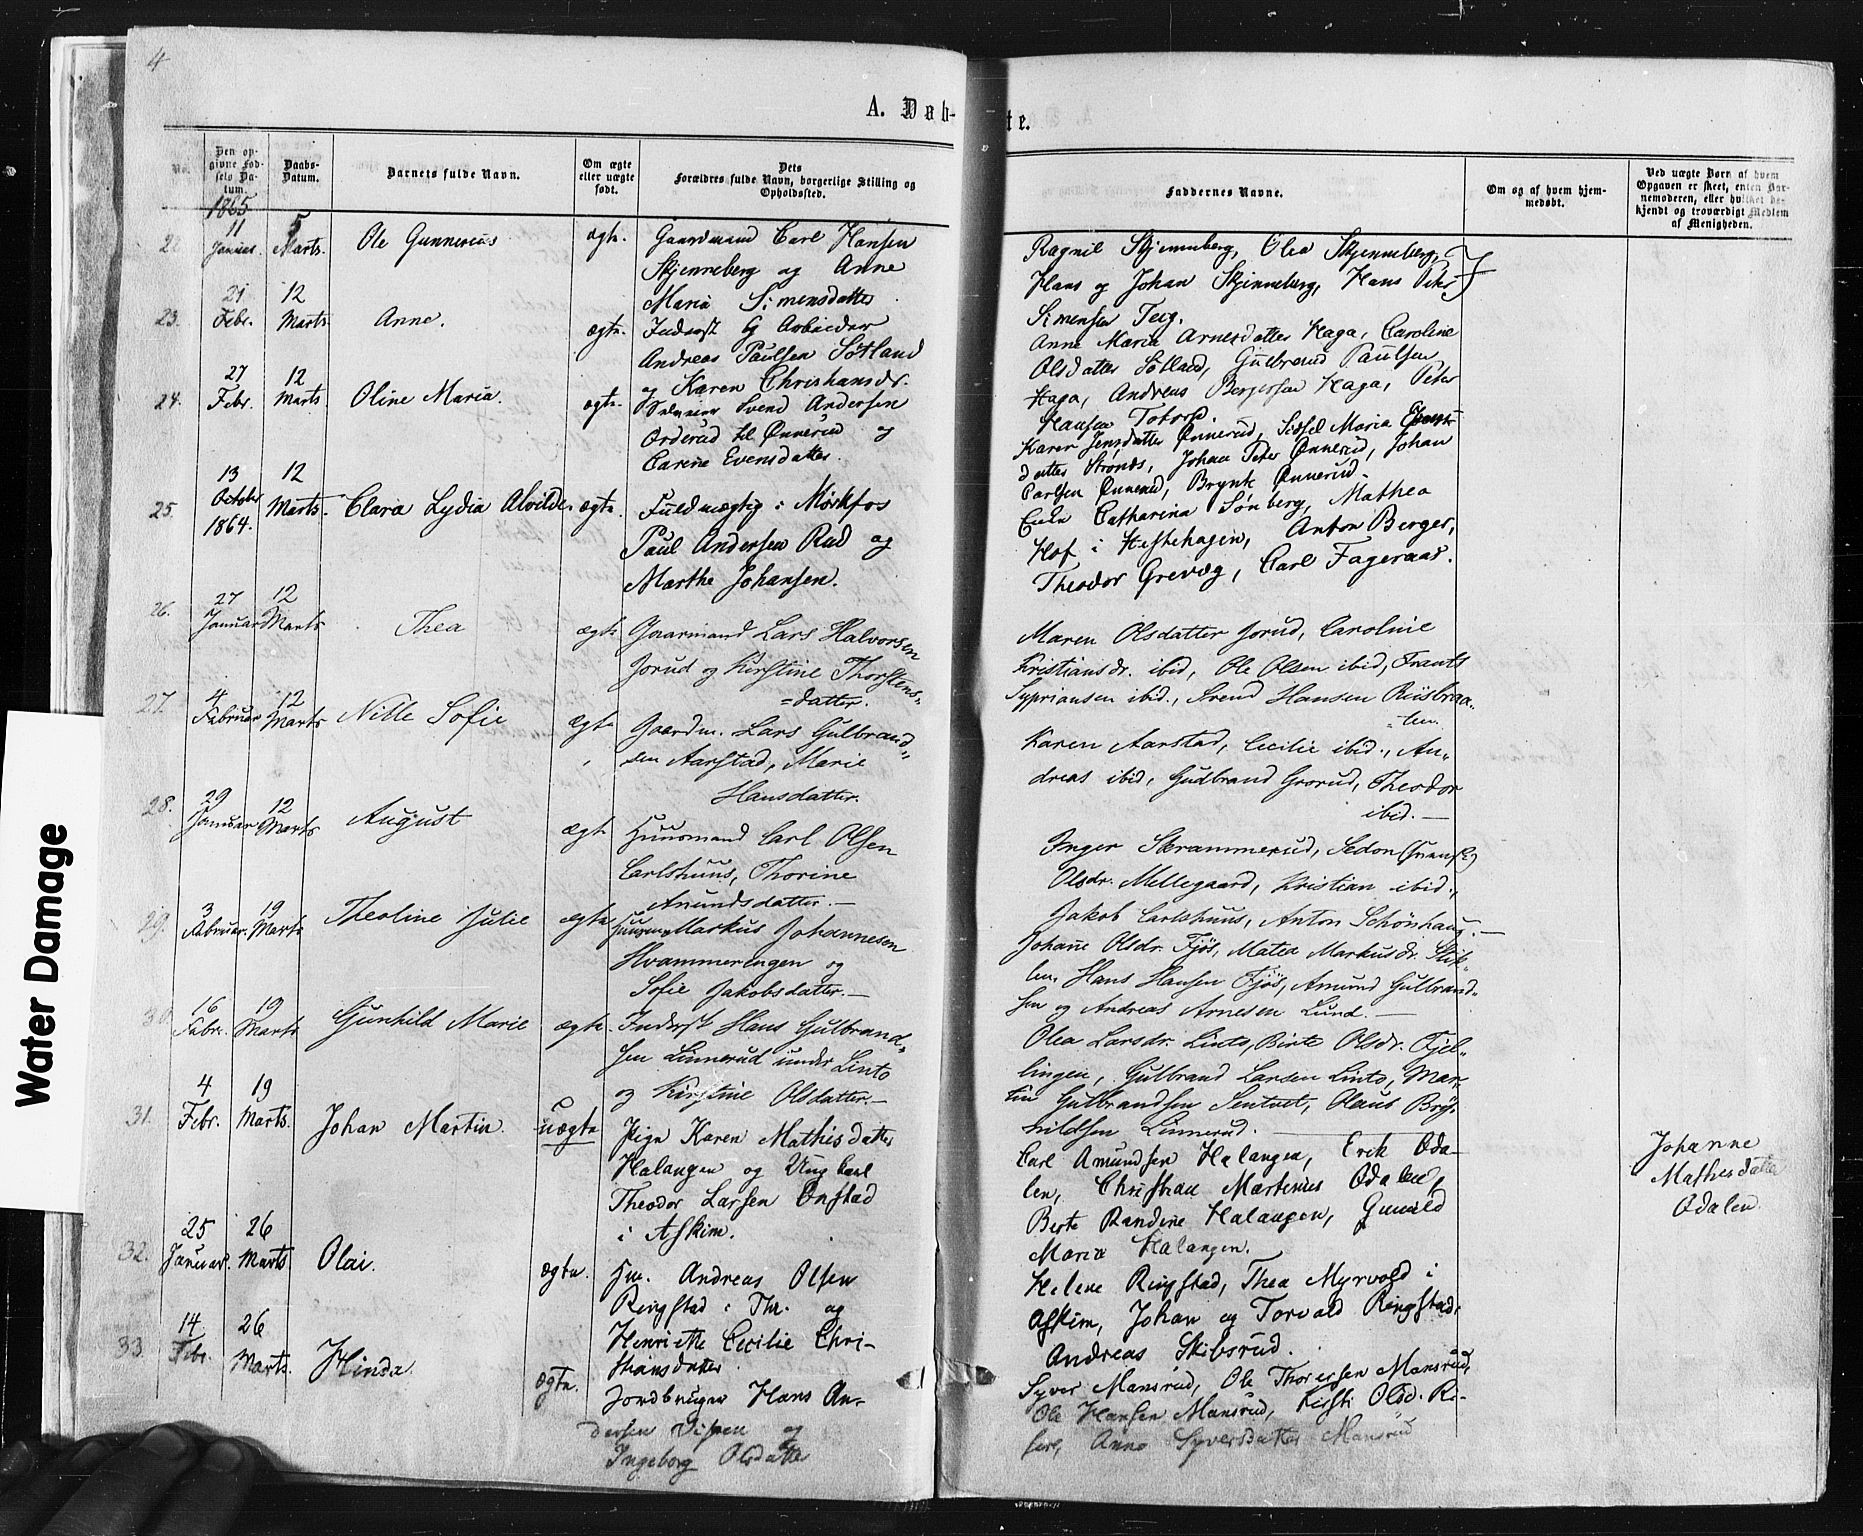 4
A. Døb-
te.
No.
Den op-
givne Fød-
sels Da-
tum.
Daabs-
Datum.
Barnets fulde Navn.
Om ægte
eller uægte
født.
Dets
Forældres fulde Navn, borgerlige Stilling og
Opholdssted.
Faddernes Navne.
Om og af hvem hjem-
medøbt.
Ved uægte Børn af hvem
Opgaven er skeet, enten Bar-
nemoderen, eller hvilket be-
kjendt og troværdigt Medlem
af Menigheden.
1865
11
Januar.
5
Marts.
Ole Gunnerius
ægte.
Gaardmand Carl Hansen
Skjenneberg og Anne
Maria Simensdatter
Ragnil Skjenneberg, Olea Skjenneberg,
Hans og Johan Skjenneberg, Hans Peter
Simensen Teig.
23.
21
Febr.
12
Marts
Anne.
ægte.
Inderst G Arbeider
Andreas Paulsen Søtland
og Karen Christiansdr.
Anne Maria Arnesdatter Haga, Caroline
Olsdatter Søtland, Gulbrand Paulsen
Haga, Andreas Bergersen Haga, Peter
Hansen Totorp.
24.
27
Febr.
12
Marts
Oline Maria.
ægte.
Svend Andersen
Orderud til Ønnerud og
Carine Evensdatter.
Karen Jensdatter Ønnerud, Sidsel Maria
datter Strønds, Johan Peter Ønnerud, Johan
Carlsen Ønnerud, Brynk Ønnerud.
25.
13
October
1864.
12
Marts.
Clara Lydia Alvilde.
ægte.
Fuldmægtig i Mørkfos
Paul Andersen Rud og
Marthe Johansen.
Catharina Sønberg, Mathea
Hof i Hestehagen, Anton Berger,
Theodor Grevæg, Carl Fageraas.
26.
27
Januar
12
Marts
Thea
ægte
Gaarmand Lars Halvorsen
Jorud og Kirstine Thorstens-
=datter.
Maren Olsdatter Jorud, Caroline
Kristiansdr. ibid, Ole Olsen ibid, Frants
Sypriansen ibid., Svend Hansen Riisbraa-
=ten.
27.
4
Februar
12
Marts
Nille Sofie
ægte
Gaardm. Lars Gulbrand„
sen Aarstad, Marie
Hansdatter.
Karen Aarstad, Cecilie ibid., An„
dreas ibid, Gudbrand Grorud, Theodor
ibid.—
28.
29
Januar
12
Marts
August
ægte
Huusmand Carl Olsen
Carlshuus, Thorine
Anundsdatter.—
Inger Skrammerud, Sedon
Olsdr. Mellegaard, Kristian ibid.,
Jakob Carlshuus, Anton Schönhaug.—
29.
3
Februar.
19
Marts
Theoline Julie
ægte
Huusm. Markus Johannesen
Hvammerengen og
Sofie Jakobsdatter.—
Johane Olsdr. Fjøs, Matea Markusdr. Stik-
len, Hans Hansen Fjøs, Amund Gulbrand-
sen og Andreas Arnesen Lund.—
30.
16
Febr.
19
Marts
Gunhild Marie
ægte
Inderst Hans Gulbrand„
sen Linnerud under Linto
og Kirstine Olsdatter.—
Olea Larsdr. Linto, Birte Olsdr. Fjel„
lingen, Gulbrand Larsen Linto, Mar-
tin Gulbrandsen Sentvet, Olaus Bryn
hildsen Linnerud.
31.
4
Febr.
19
Marts.
Johan Martin.
uægte
Pige Karen Mathisdatter
Halangen og Ung Carl
Theodor Larsen Onstad
i Askim.
Carl Amundsen Halangen, Erik Oda-
len, Christian Martinius Odalen,
Berte Randine Halangen, Gunild
Maria Halangen.
Johanne
Mathesdatter
Odalen.
32.
25
Januar.
26
Marts.
Olai.
ægte.
Hm. Andreas Olsen
Ringstad i Thr. og
Henriette Cecilie Chri-
stiansdatter
Helene Ringstad, Thea Myrvold i
Askim, Johan og Torvald Ringstad.
Andreas Skibsrud.
33.
14
Febr.
26
Marts.
Hinda.
ægte.
Jordbruger Hans An-
dersen og
Ingeborg Olsdatter
Syver Mansrud, Ole Thorersen Mansrud,
Ole Hansen Mansrud, Kisti Olsd. Ri-
sere, Anne Syversdatter Mansrud
Water Damage